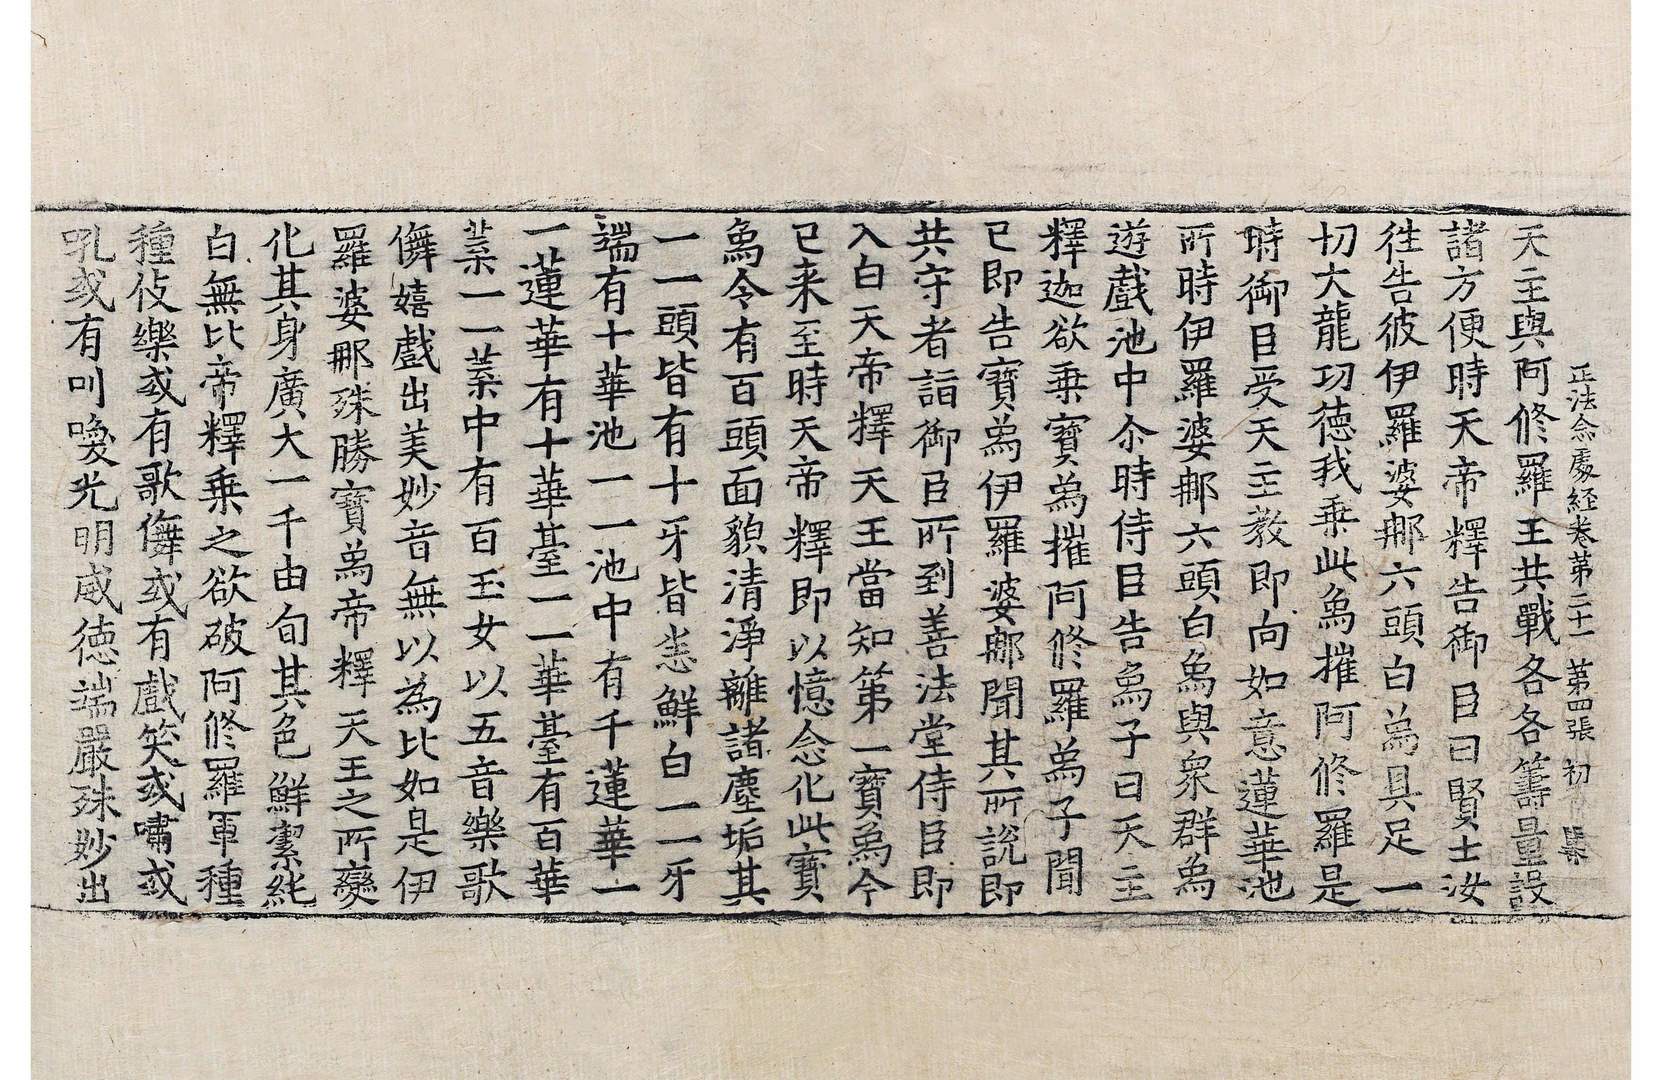 正法念處経卷第二十一 第四張 初
天主與阿修羅王共戰各各籌量設
諸方便時天帝釋告御臣曰賢士汝
徃告彼伊羅婆那六頭白象具足一
切大龍功德我乗此象摧阿修羅是
時御臣受天主教即向如意蓮華池
所時伊羅婆那六頭白象與衆群象
遊戲池中尒時侍臣告象子曰天主
釋迦欲乗寶象摧阿修羅象子聞
已即告寶象伊羅婆那聞其所說即
共守者詣御臣所到善法堂侍臣即
入白天帝釋天王當知第一寶象今
已来至時天帝釋即以憶念化此寶
象令有百頭面貌清淨離諸塵垢其
一一頭皆有十牙皆悉鮮白一一牙
端有十華池一一池中有千蓮華一
一蓮華有十華臺一一華臺有百華
葉一一葉中有百玉女以五音樂歌
儛嬉戲出美妙音無以為比如是伊
羅婆那殊勝寶象帝釋天王之所變
化其身廣大一千由旬其色鮮潔純
白無比帝釋乗之欲破阿修羅軍種
種伎樂或有歌儛或有戲笑或嘯或
吼或有叫喚光明威德端嚴殊妙出